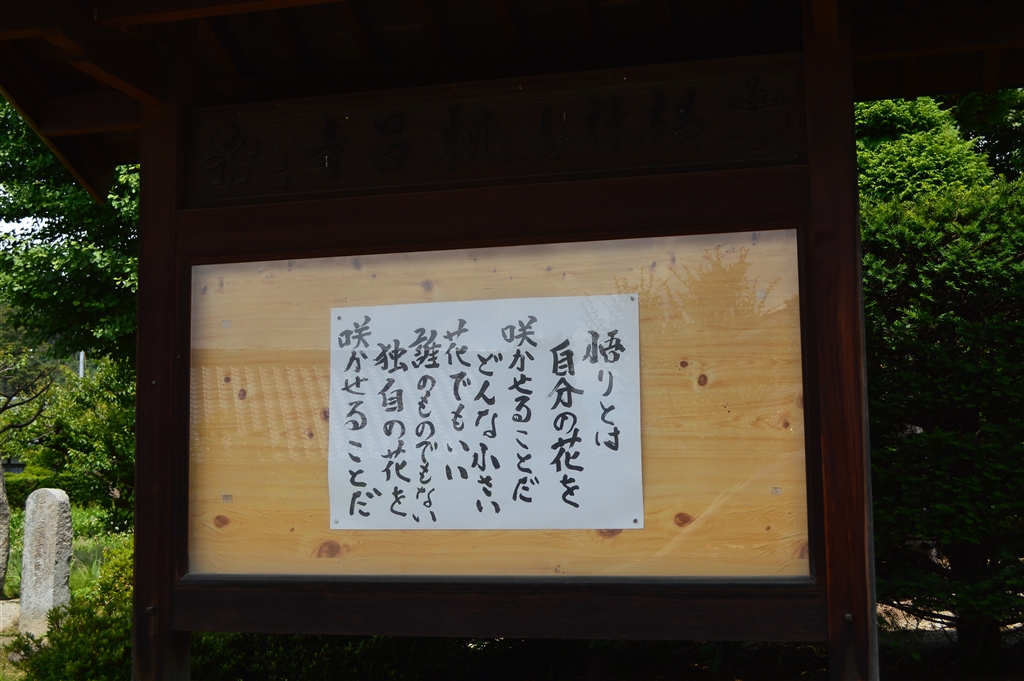 悟りとは
自分の花を
咲かせることだ
どんな小さい
花でもいい
誰のものでもない
独自の花を
咲かせることだ